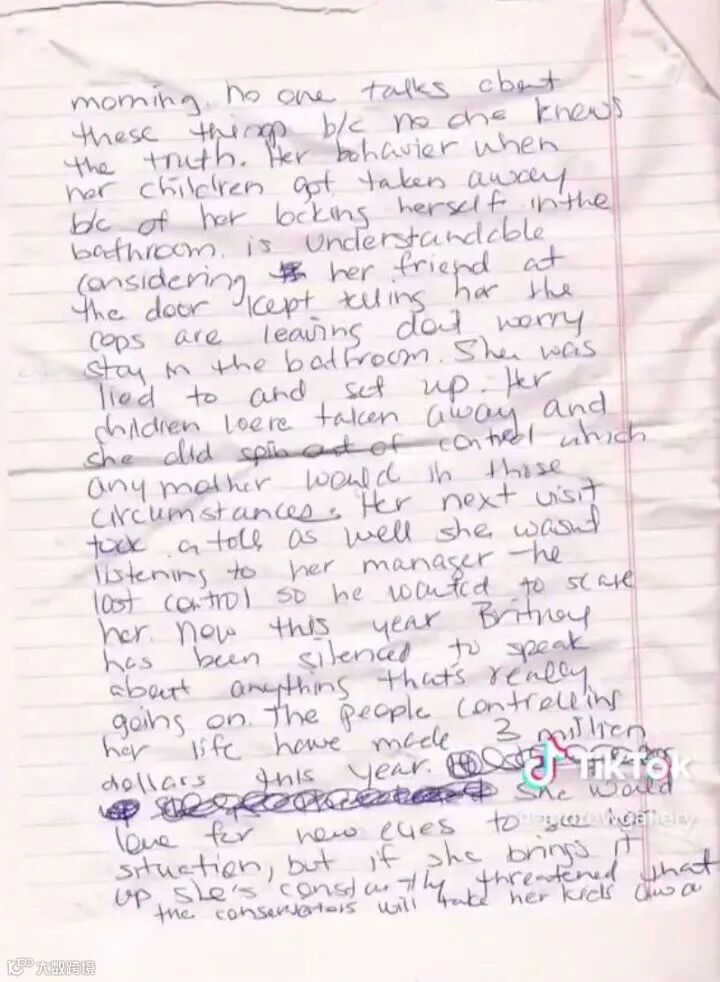 morning. no one talks about
these things b/c no one knows
the truth. Her behavier when
her children got taken away
b/c of her locking herself in the
bathroom. is understandable
considering her friend at
the door kept telling her the
cops are leaving dont worry
stay in the bathroom. She was
lied to and set up. Her
children were taken away and
she did spin out of control which
any mother would in those
circumstances. Her next visit
took a toll as well she wasnt
listening to her manager - he
lost control so he wanted to scare
her. Now this year Britney
has been silenced to speak
about anything that's really
going on. The people controlling
her life have made 3 million
dollars this year.
She would
love for new eyes to see her
situation, but if she brings it
up she's constantly threatened that
the conservators will take her kids awa
TikTok
gallery
大数跨境